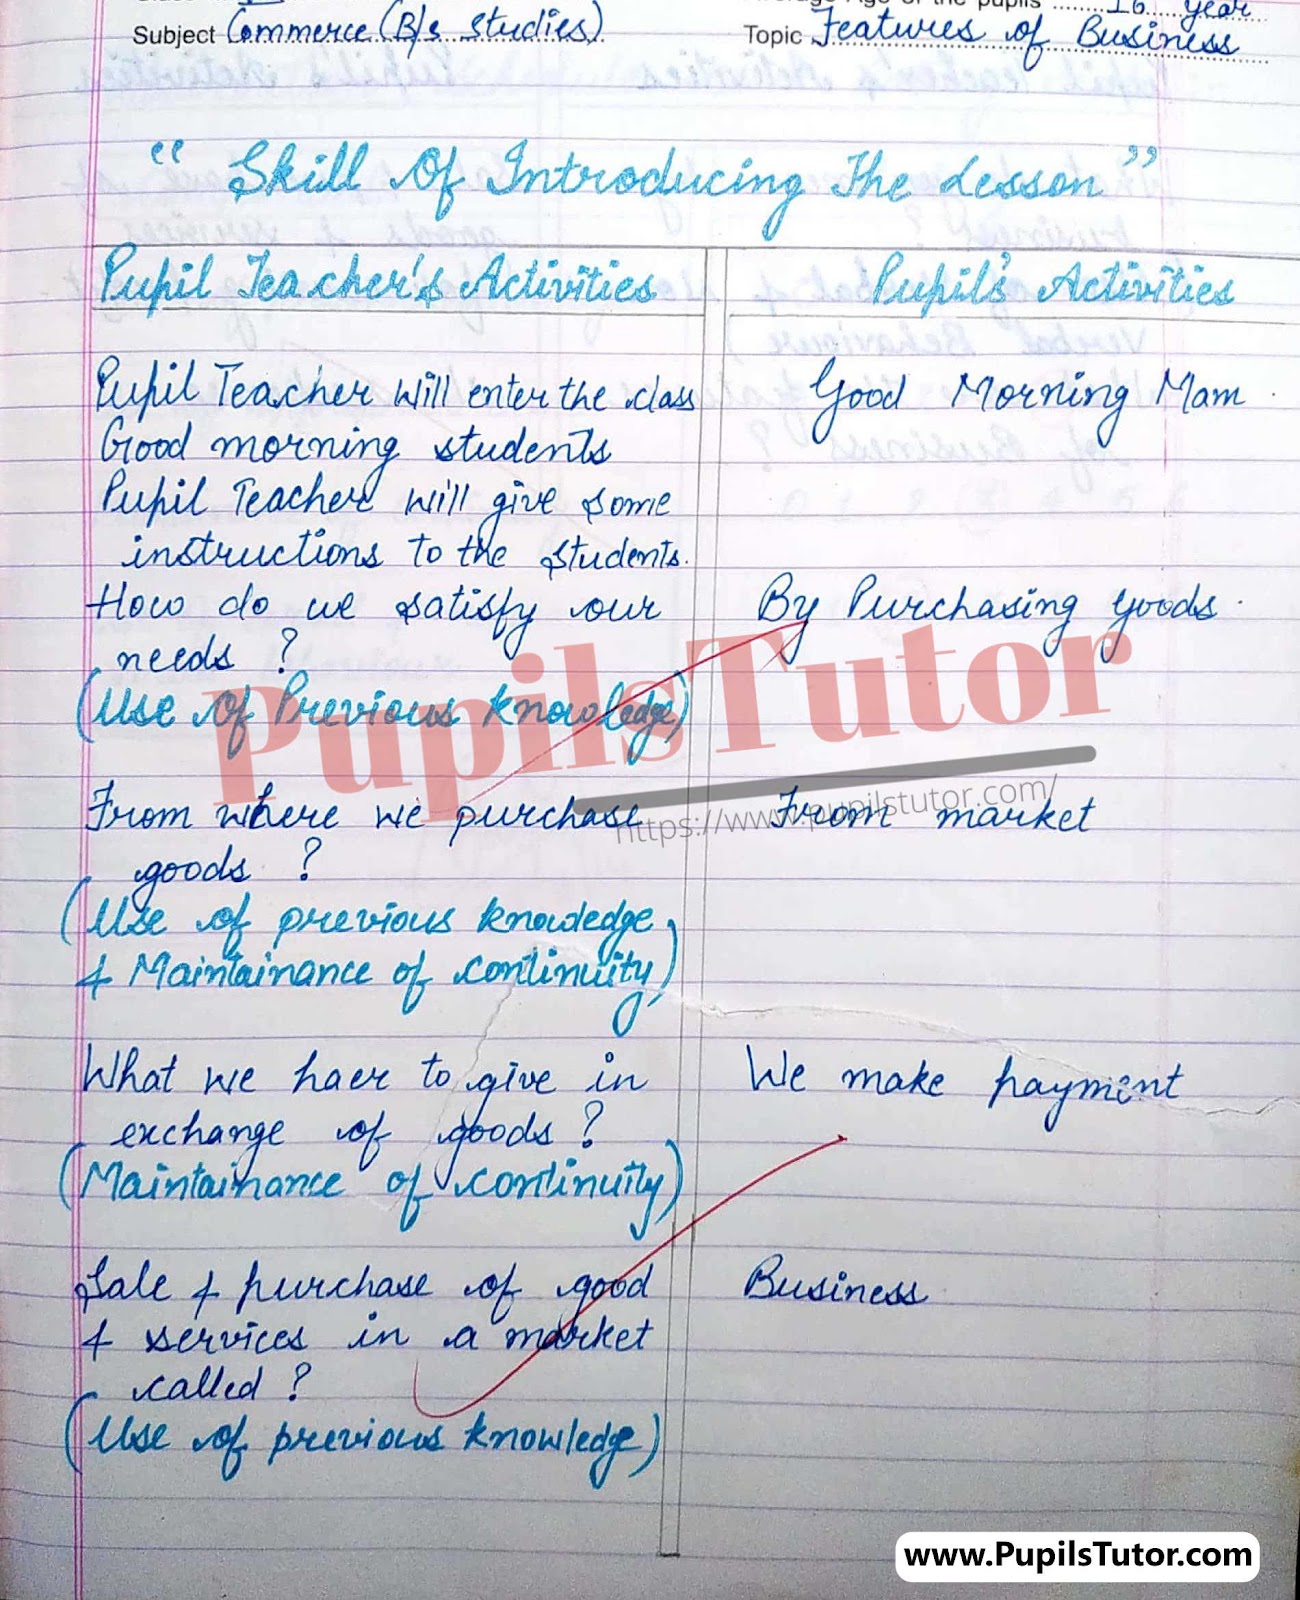 Average Age of the pupils 16 year
Subject Commerce (B/s Studies)
Topic Features of Business
" Skill Of Introducing The Lesson "
Pupil Teacher's Activities
Pupil's Activities
Pupil Teacher will enter the class
Good Morning Mam.
Good morning students
Pupil Teacher will give some
instructions to the students.
How do we satisfy our
By Purchasing goods.
needs ?
(Use of Previous knowledge)
From where we purchase
From market
goods ?
(Use of previous knowledge
& Maintainance of continuity)
What we haer to give in
We make payment
exchange of goods ?
(Maintainance of continuity)
Sale & purchase of good
Business
& services in a market
called ?
(Use of previous knowledge)
PupilsTutor
https://www.pupilstutor.com/
www.PupilsTutor.com